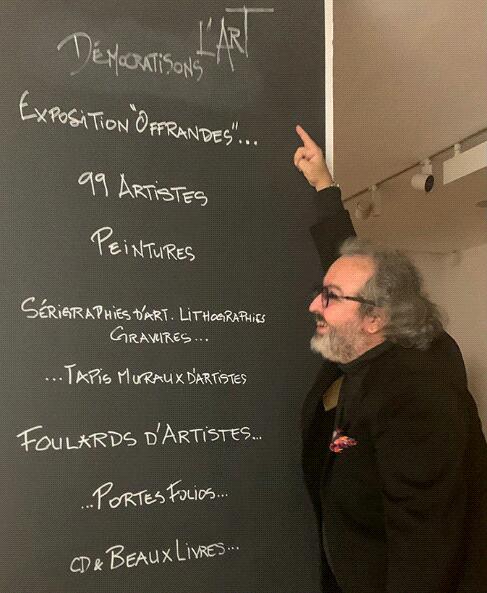 DÉMOCRATISONS L'ART
EXPOSITION "OFFRANDES"...
99 ARTISTES
PEINTURES
SÉRIGRAPHIES D'ART. LITHOGRAPHIES
GRAVURES...
...TAPIS MURAUX D'ARTISTES
FOULARDS D'ARTISTES...
...PORTES FOLIOS...
CD & BEAUX LIVRES...